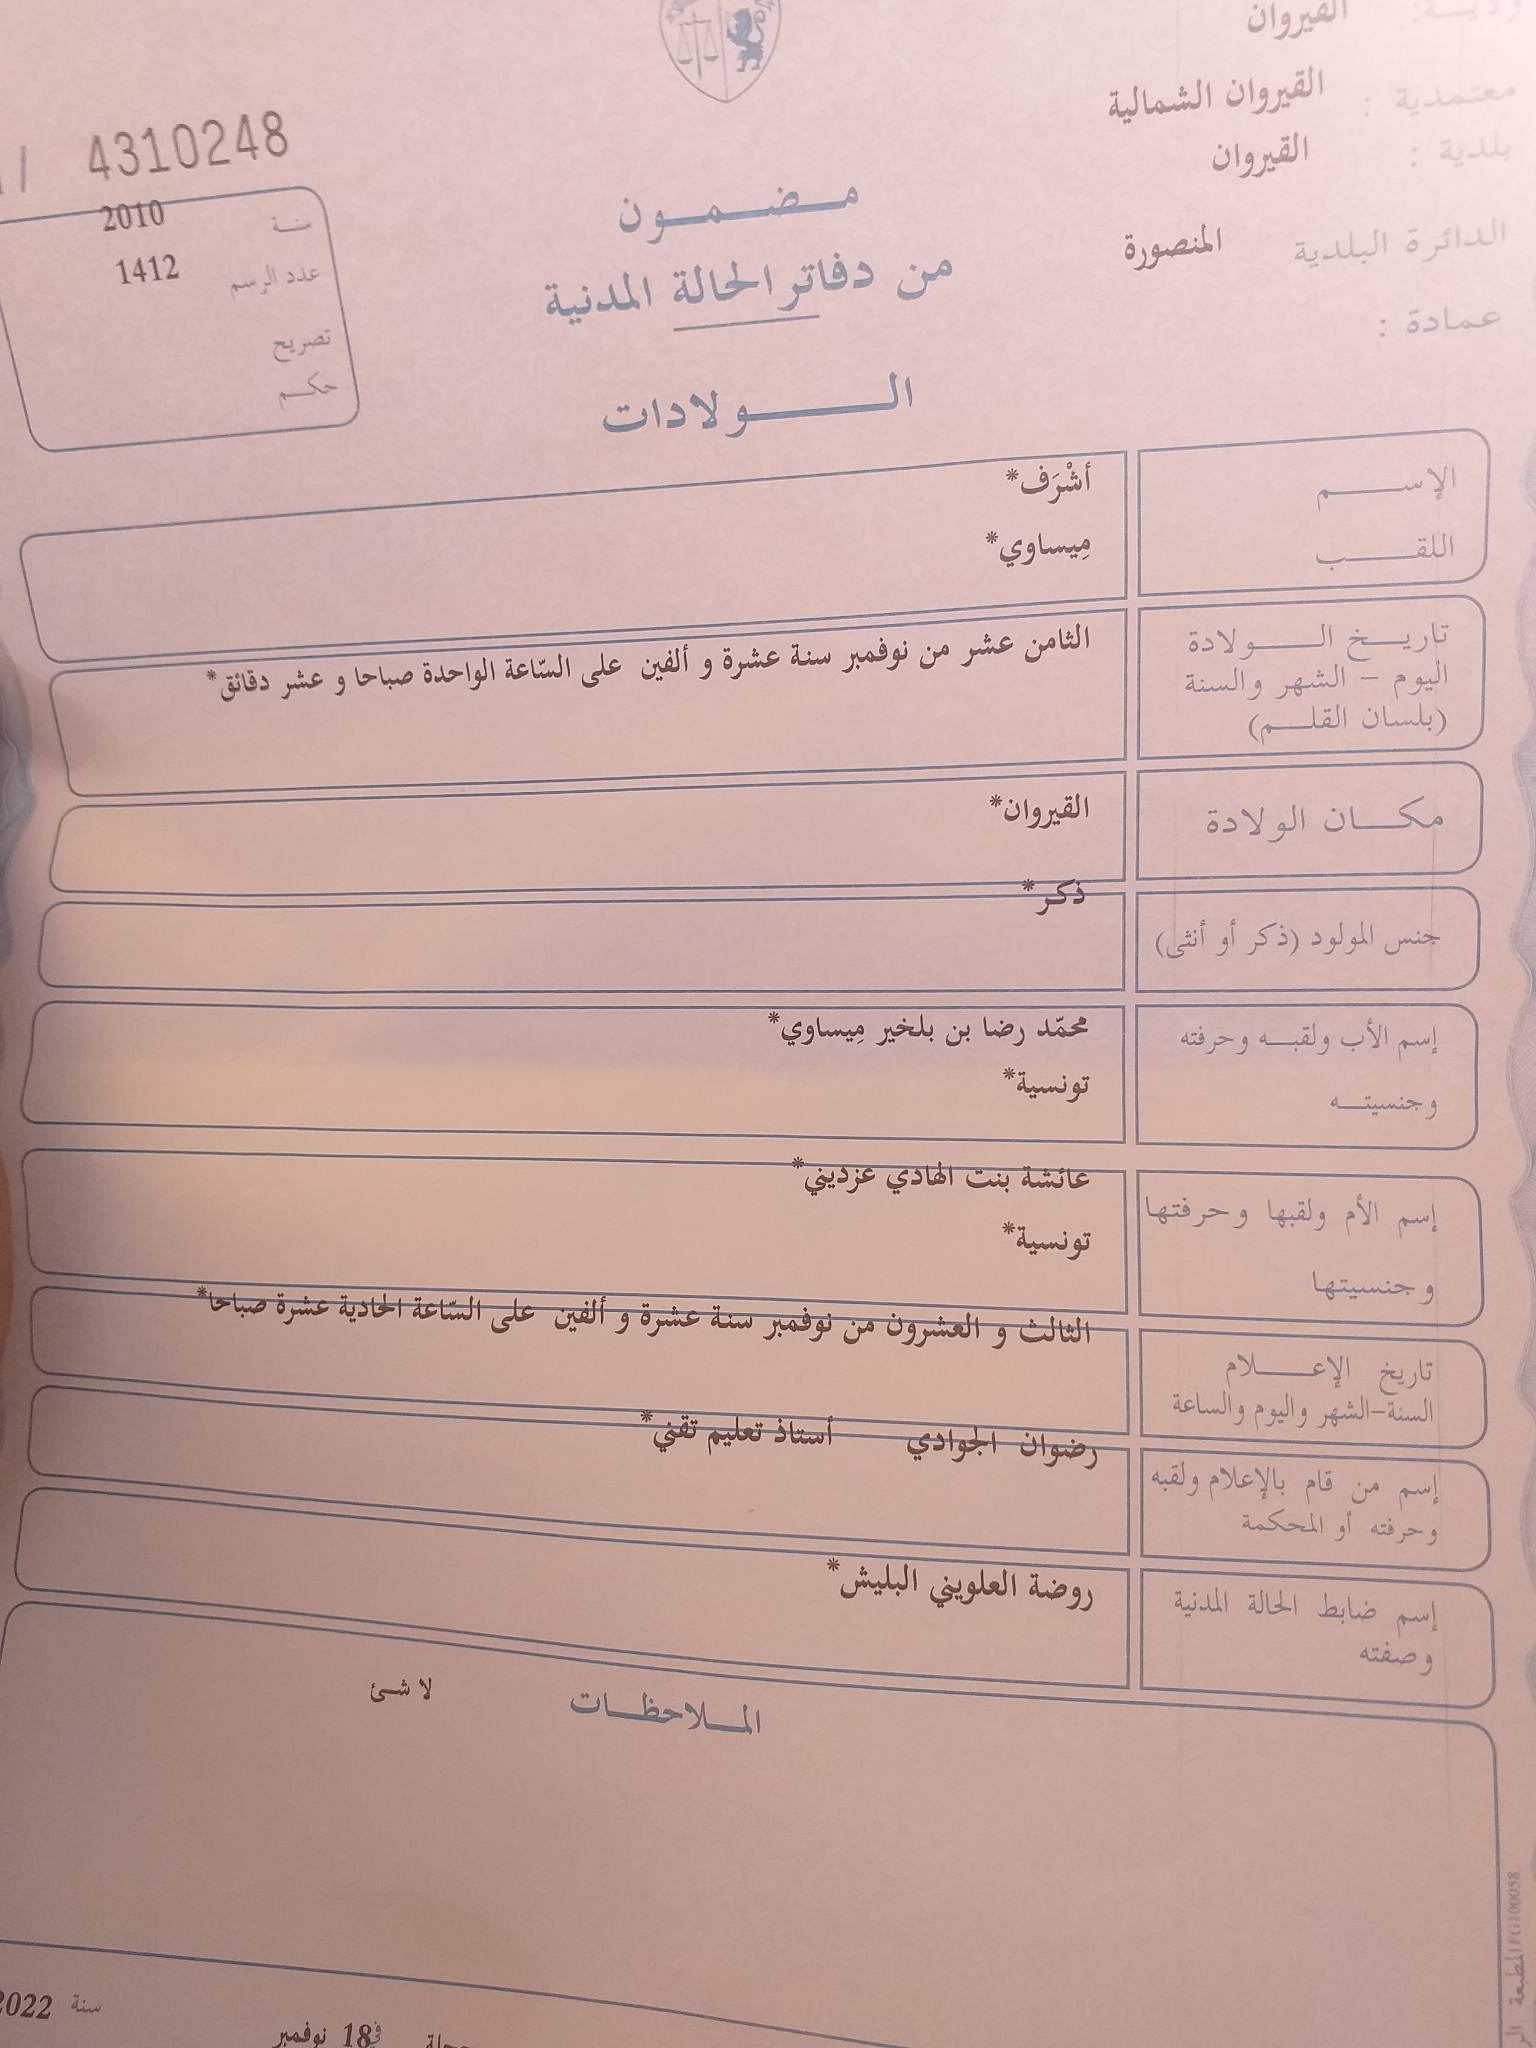 القيروان
معتمدية : القيروان الشمالية
بلدية : القيروان
الدائرة البلدية المنصورة
عمادة :
4310248
سنة 2010
عدد الرسم 1412
تصريح
حكم
مضمون
من دفاتر الحالة المدنية
الولادات
الإسم أشْرَف*
اللقب مِيساوي*
تاريخ الولادة الثامن عشر من نوفمبر سنة عشرة و ألفين على السّاعة الواحدة صباحا و عشر دقائق*
اليوم - الشهر والسنة
(بلسان القلم)
مكان الولادة القيروان*
جنس المولود (ذكر أو أنثى) ذكر*
إسم الأب ولقبه وحرفته محمّد رضا بن بلخير مِيساوي*
وجنسيته تونسية*
إسم الأم ولقبها وحرفتها عائشة بنت الهادي عزديني*
وجنسيتها تونسية*
تاريخ الإعلام الثالث و العشرون من نوفمبر سنة عشرة و ألفين على السّاعة الحادية عشرة صباحا*
السنة-الشهر واليوم والساعة
إسم من قام بالإعلام ولقبه رضوان الجوادي أستاذ تعليم تقني*
وحرفته أو المحكمة
إسم ضابط الحالة المدنية روضة العلويني البليش*
وصفته
الملاحظات لا شئ
في 18 نوفمبر سنة 2022